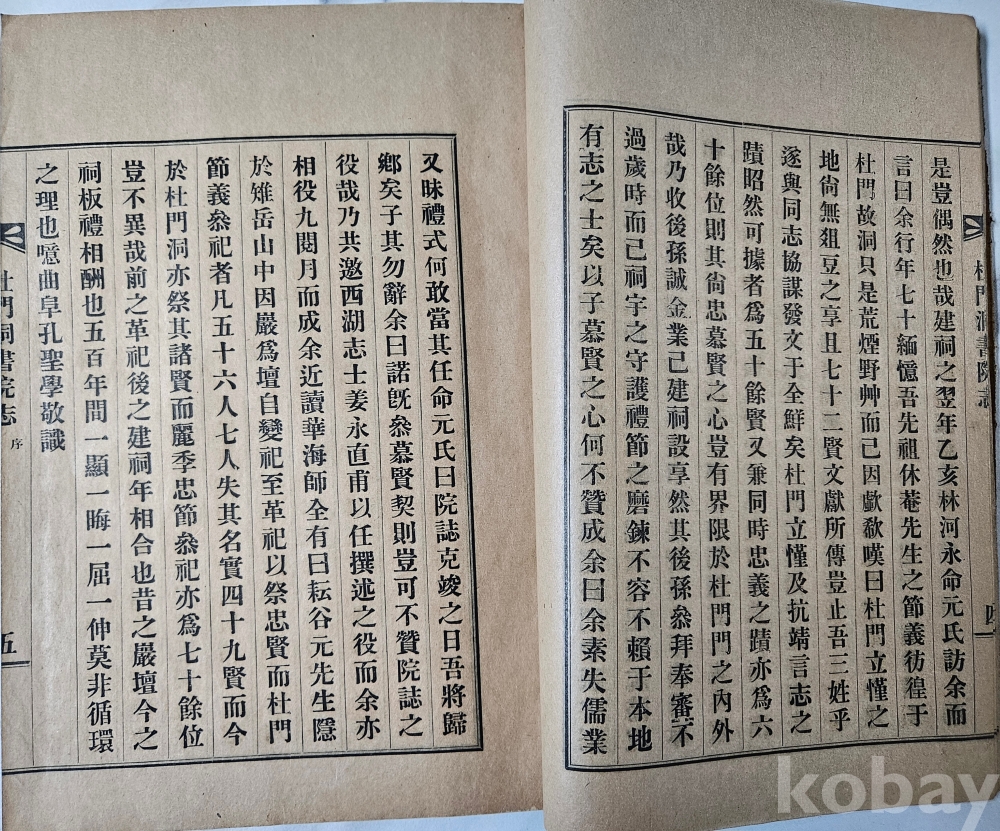 是豈偶然也哉建祠之翌年乙亥林河永命元氏訪余而
言曰余行年七十緬憶吾先祖休菴先生之節義彷徨于
杜門故洞只是荒煙野艸而已因歔欷嘆曰杜門立慬之
地尙無俎豆之享且七十二賢文獻所傳豈止吾三姓乎
遂與同志協謀發文于全鮮矣杜門立慬及抗靖言志之
蹟昭然可據者爲五十餘賢又兼同時忠義之蹟亦爲六
十餘位則其尙忠慕賢之心豈有界限於杜門門之內外
哉乃收後孫誠金業已建祠設享然其後孫叅拜奉審不
過歲時而已祠宇之守護禮節之磨鍊不容不賴于本地
有志之士矣以子慕賢之心何不贊成余曰余素失儒業
杜門洞書院志
四
又昧禮式何敢當其任命元氏曰院誌克竣之日吾將歸
鄕矣子其勿辭余曰諾旣叅慕賢契則豈可不贊院誌之
役哉乃共邀西湖志士姜永直甫以任撰述之役而余亦
相役九閱月而成余近讀華海師全有曰耘谷元先生隱
於雉岳山中因嚴爲壇自變祀至革祀以祭忠賢而杜門
節義叅祀者凡五十六人七人失其名實四十九賢而今
於杜門洞亦祭其諸賢而麗季忠節叅祀亦爲七十餘位
豈不異哉前之革祀後之建祠年相合也昔之嚴壇今之
祠板禮相酬也五百年間一顯一晦一屈一伸莫非循環
之理也噫曲阜孔聖學敬識
杜門洞書院志 序
五
kobay